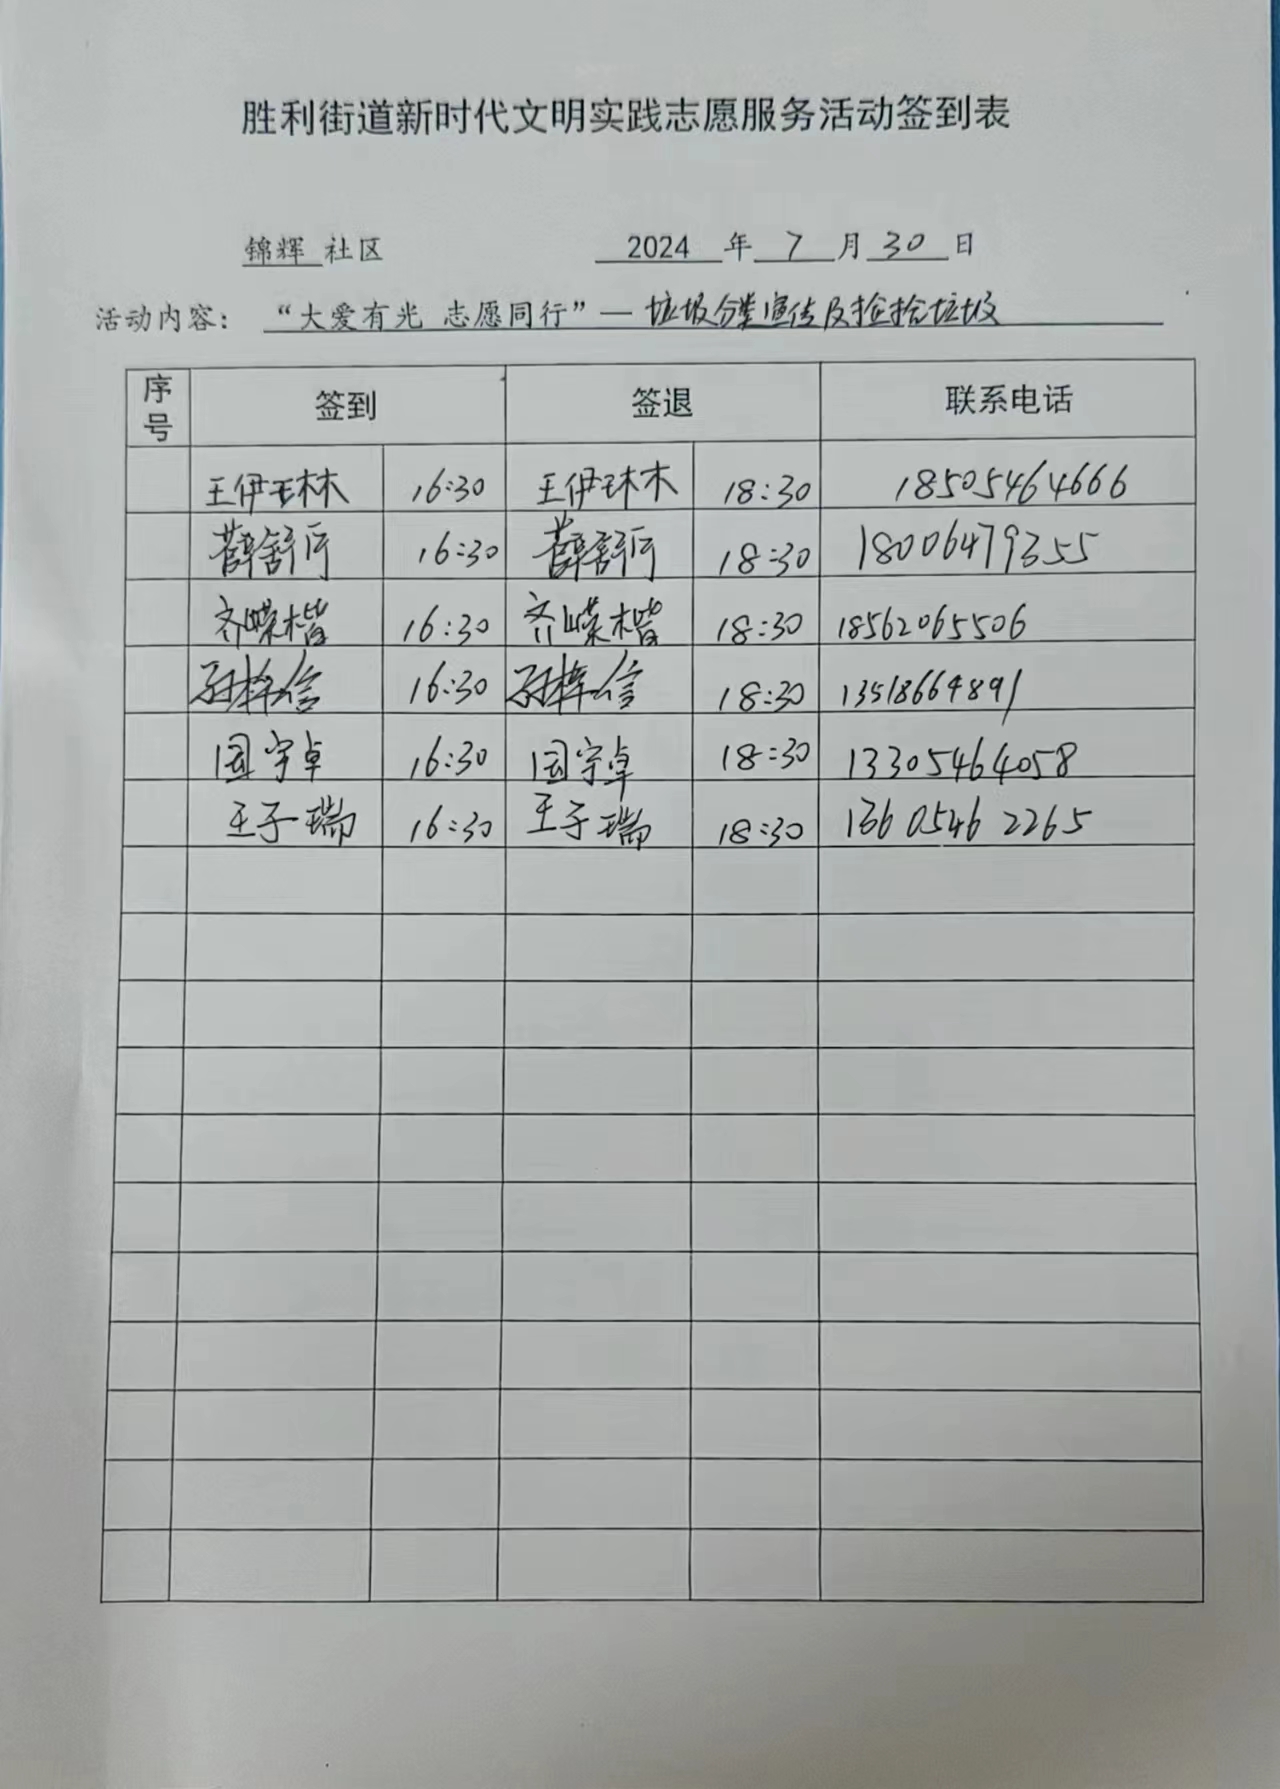 胜利街道新时代文明实践志愿服务活动签到表
锦辉 社区 2024 年 7 月 30 日
活动内容： “大爱有光 志愿同行”— 垃圾分类宣传及捡拾垃圾
序号 签到 签退 联系电话
王伊琳 16:30 王伊琳 18:30 18505464666
薛舒 16:30 薛舒 18:30 18006479355
齐嵘楷 16:30 齐嵘楷 18:30 18562065506
孙梓信 16:30 孙梓信 18:30 13518664891
国宇卓 16:30 国宇卓 18:30 13305464058
王子瑞 16:30 王子瑞 18:30 136 0546 2265